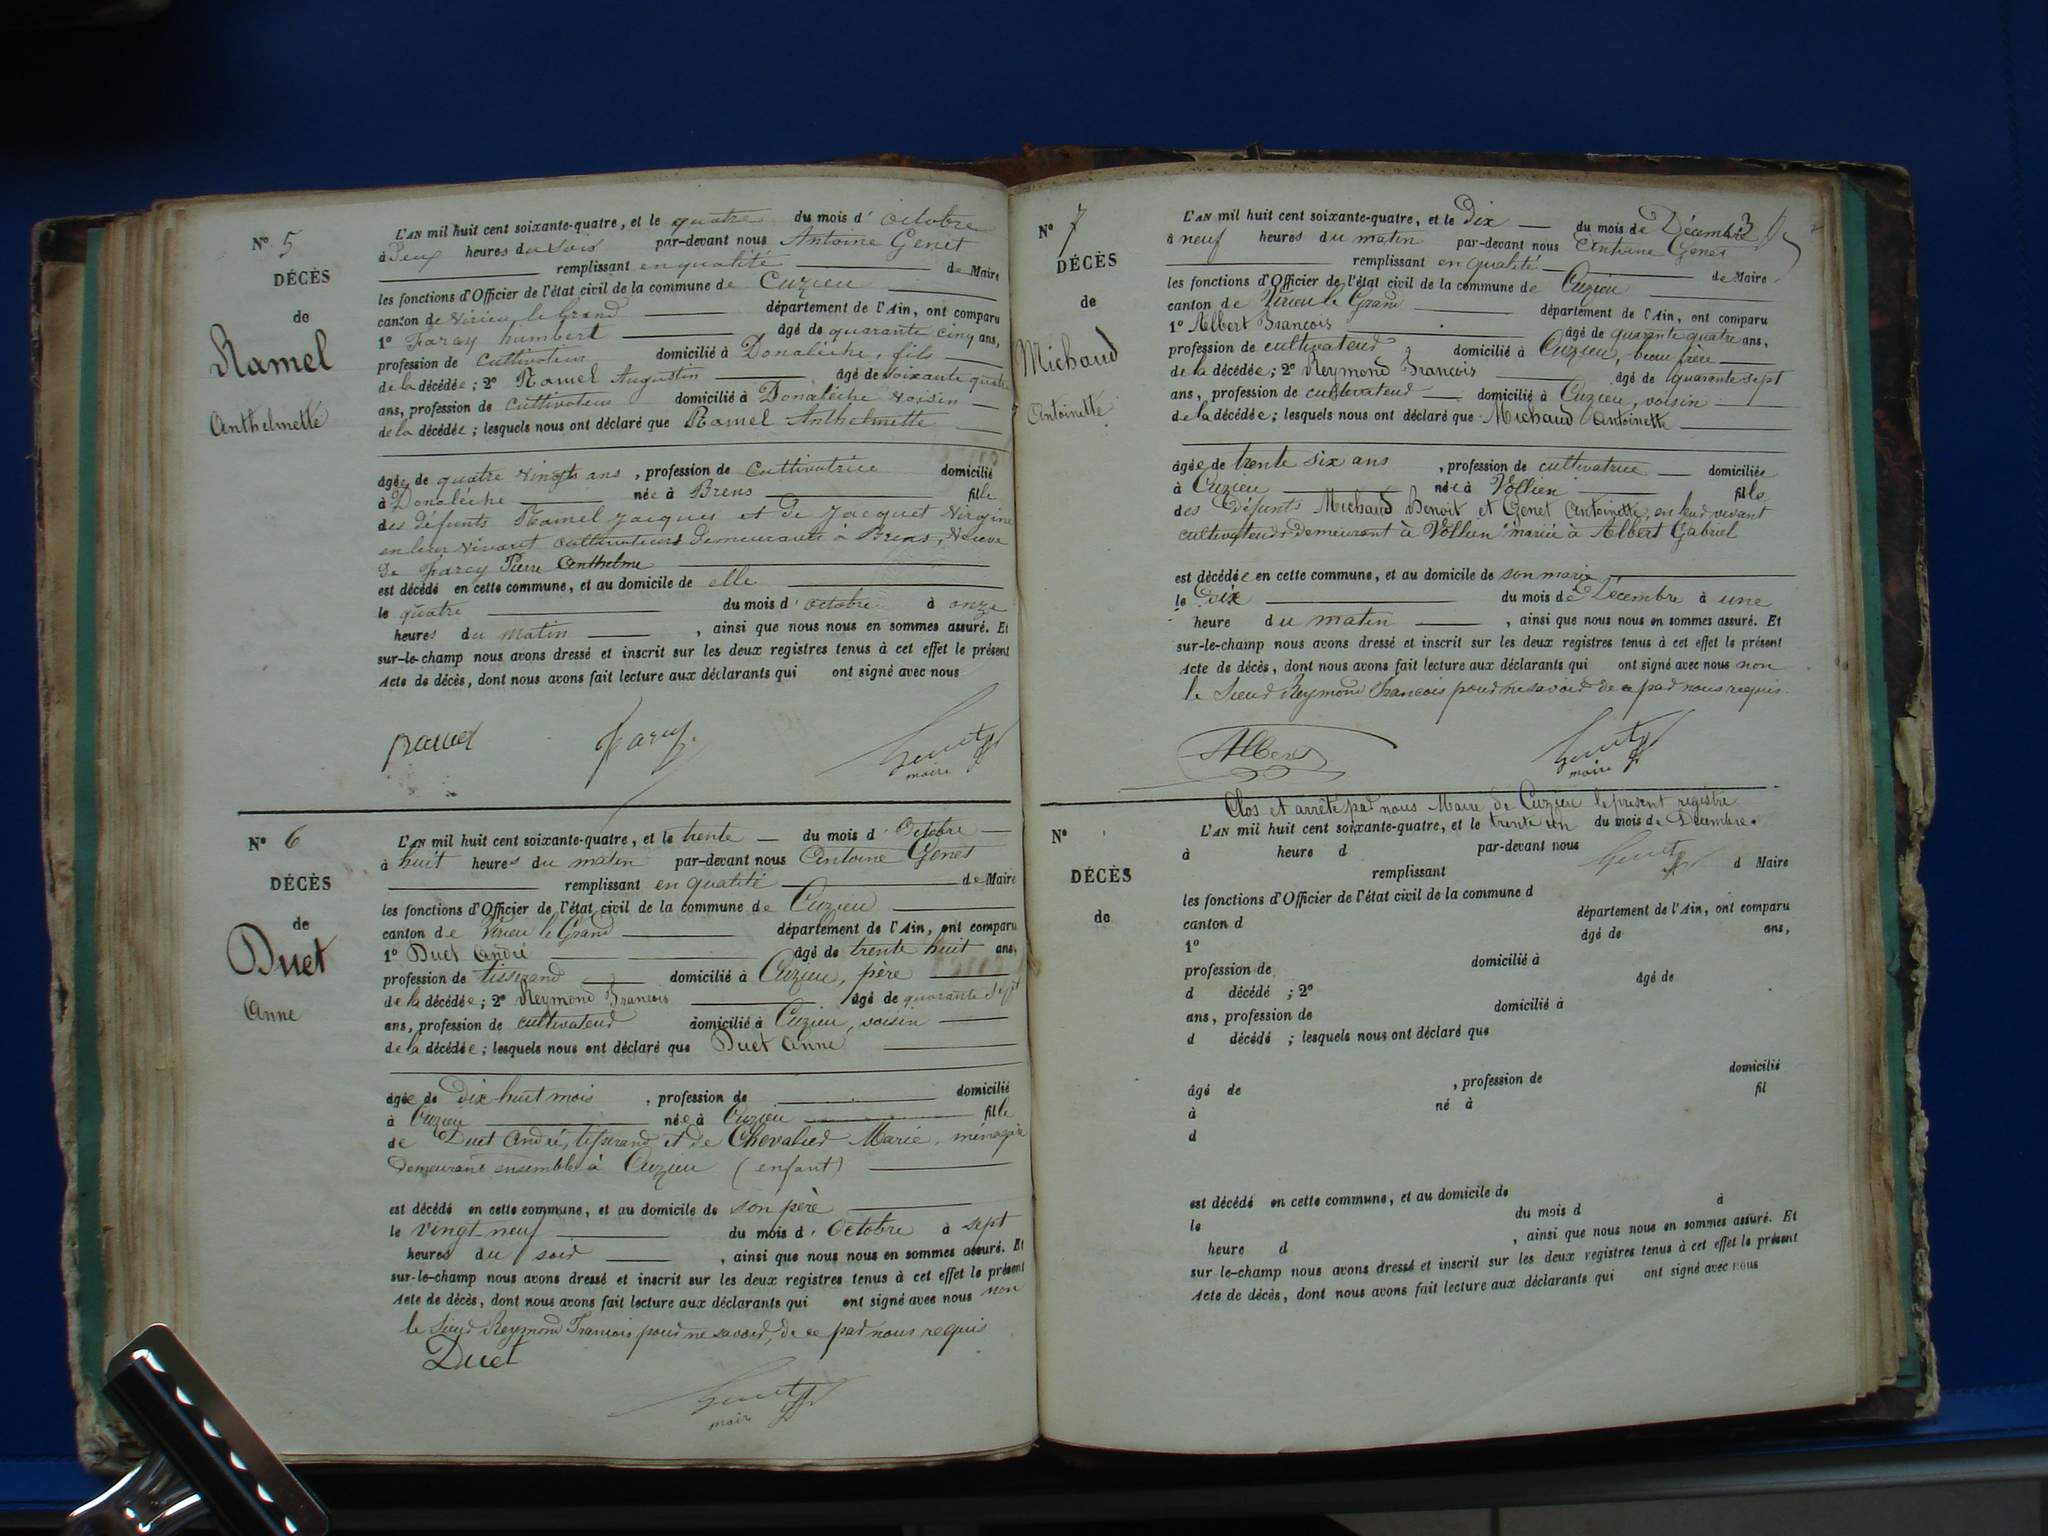 N° 5
DÉCÈS
de
Ramel
Anthelmette
L'AN mil huit cent soixante-quatre, et le quatre du mois d'octobre
à Deux heures du soir par-devant nous Antoine Genet
remplissant en qualité de Maire
les fonctions d'Officier de l'état civil de la commune de Cuzieu
canton de Virieu le Grand département de l'Ain, ont comparu
1° Parcy humbert âgé de quarante cinq ans,
profession de Cultivateur domicilié à Donalèche, fils
de la décédée; 2° Ramel Augustin âgé de soixante quatre
ans, profession de Cultivateur domicilié à Donalèche voisin
de la décédée; lesquels nous ont déclaré que Ramel Anthelmette
âgée de quatre vingts ans, profession de Cultivatrice domicilié
à Donalèche née à Brens fille
des défunts Ramel Jacques et de Jacquet Virginie
en leur vivant cultivateurs demeurant à Brens, Veuve
de Parcy Pierre Anthelme
est décédé en cette commune, et au domicile de elle
le quatre du mois d'octobre à onze
heures du matin, ainsi que nous nous en sommes assuré. Et
sur-le-champ nous avons dressé et inscrit sur les deux registres tenus à cet effet le présent
Acte de décès, dont nous avons fait lecture aux déclarants qui ont signé avec nous
Ramel Parcy Genet
maire
N° 6
DÉCÈS
de
Duet
Anne
L'AN mil huit cent soixante-quatre, et le trente du mois d'Octobre
à huit heures du matin par-devant nous Antoine Genet
remplissant en qualité de Maire
les fonctions d'Officier de l'état civil de la commune de Cuzieu
canton de Virieu le Grand département de l'Ain, ont comparu
1° Duet André âgé de trente huit ans,
profession de tisserand domicilié à Cuzieu, père
de la décédée; 2° Reymond François âgé de quarante sept
ans, profession de cultivateur domicilié à Cuzieu, voisin
de la décédée; lesquels nous ont déclaré que Duet Anne
âgée de Dix huit mois, profession de domicilié
à Cuzieu née à Cuzieu fille
de Duet André, tisserand et de Chevalier Marie, ménagère
demeurant ensemble à Cuzieu (enfant)
est décédé en cette commune, et au domicile de son père
le vingt-neuf du mois d'Octobre à sept
heures du soir, ainsi que nous nous en sommes assuré. Et
sur-le-champ nous avons dressé et inscrit sur les deux registres tenus à cet effet le présent
Acte de décès, dont nous avons fait lecture aux déclarants qui ont signé avec nous non
le Sieur Reymond François pour ne savoir, de ce par nous requis
Duet
Genet
maire
N° 7
DÉCÈS
de
Michaud
Antoinette
L'AN mil huit cent soixante-quatre, et le Dix du mois de Décembre
à neuf heures du matin par-devant nous Antoine Genet
remplissant en qualité de Maire
les fonctions d'Officier de l'état civil de la commune de Cuzieu
canton de Virieu le Grand département de l'Ain, ont comparu
1° Albert François âgé de quarante quatre ans,
profession de cultivateur domicilié à Cuzieu, beau frère
de la décédée; 2° Reymond François âgé de quarante sept
ans, profession de cultivateur domicilié à Cuzieu, voisin
de la décédée; lesquels nous ont déclaré que Michaud Antoinette
âgée de trente six ans, profession de cultivatrice domiciliée
à Cuzieu née à Vollien fille
des Défunts Michaud Benoit et Genet Antoinette, en leur vivant
cultivateurs demeurant à Vollien mariée à Albert Gabriel
est décédée en cette commune, et au domicile de son mari
le Dix du mois de Décembre à une
heure du matin, ainsi que nous nous en sommes assuré. Et
sur-le-champ nous avons dressé et inscrit sur les deux registres tenus à cet effet le présent
Acte de décès, dont nous avons fait lecture aux déclarants qui ont signé avec nous non
le Sieur Reymond François pour ne savoir de ce par nous requis.
Albert Genet
maire
Clos et arrêté par nous Maire de Cuzieu le présent registre
N°
DÉCÈS
de
L'AN mil huit cent soixante-quatre, et le trente un du mois de Décembre.
à heure d par-devant nous Genet
remplissant d Maire
les fonctions d'Officier de l'état civil de la commune d
canton d département de l'Ain, ont comparu
1° âgé de ans,
profession de domicilié à
d décédé ; 2° âgé de
ans, profession de domicilié à
d décédé ; lesquels nous ont déclaré que
âgé de , profession de domicilié
à né à fil
d
est décédé en cette commune, et au domicile de
le du mois d à
heure d , ainsi que nous nous en sommes assuré. Et
sur le-champ nous avons dressé et inscrit sur les deux registres tenus à cet effet le présent
Acte de décès, dont nous avons fait lecture aux déclarants qui ont signé avec nous